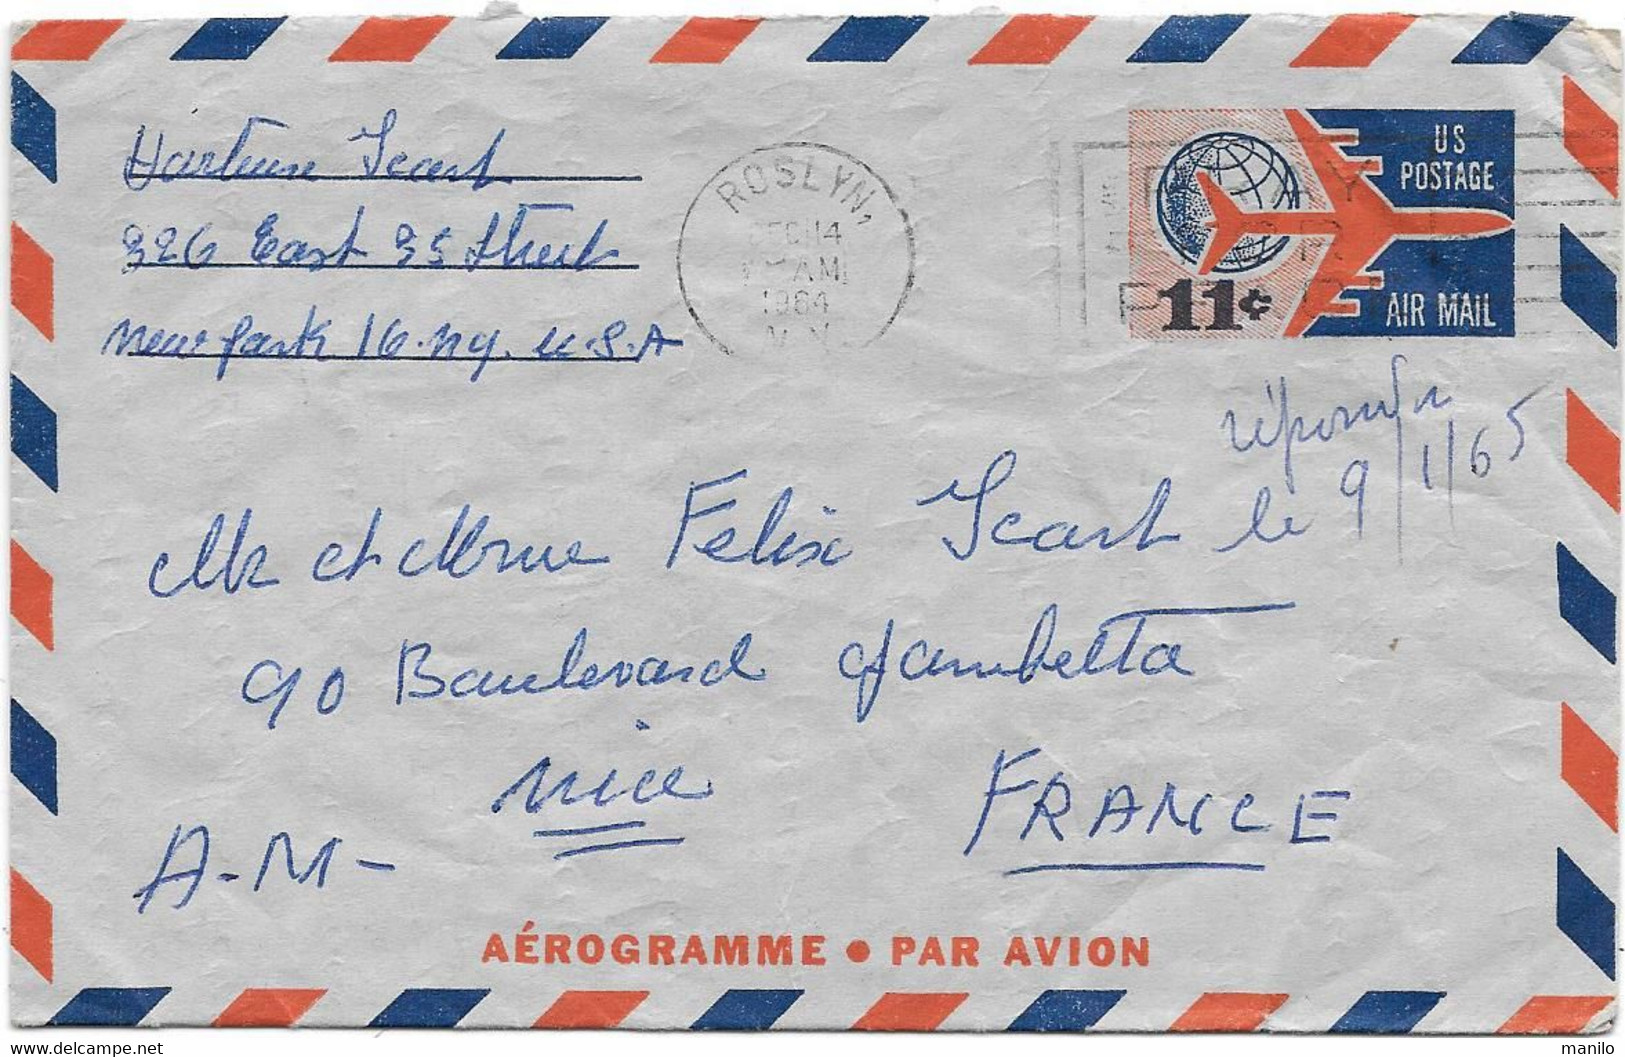 Icart
326 East 35 Street
New York 16. NY. U.S.A
ROSLYN,
DEC 14
AM
1964
N.Y.
US
POSTAGE
11¢
AIR MAIL
répondu
le 9/1/65
Mr et Mme Felix Icart
90 Boulevard Gambetta
Nice
FRANCE
A-M-
AÉROGRAMME • PAR AVION
www.delcampe.net
manilo